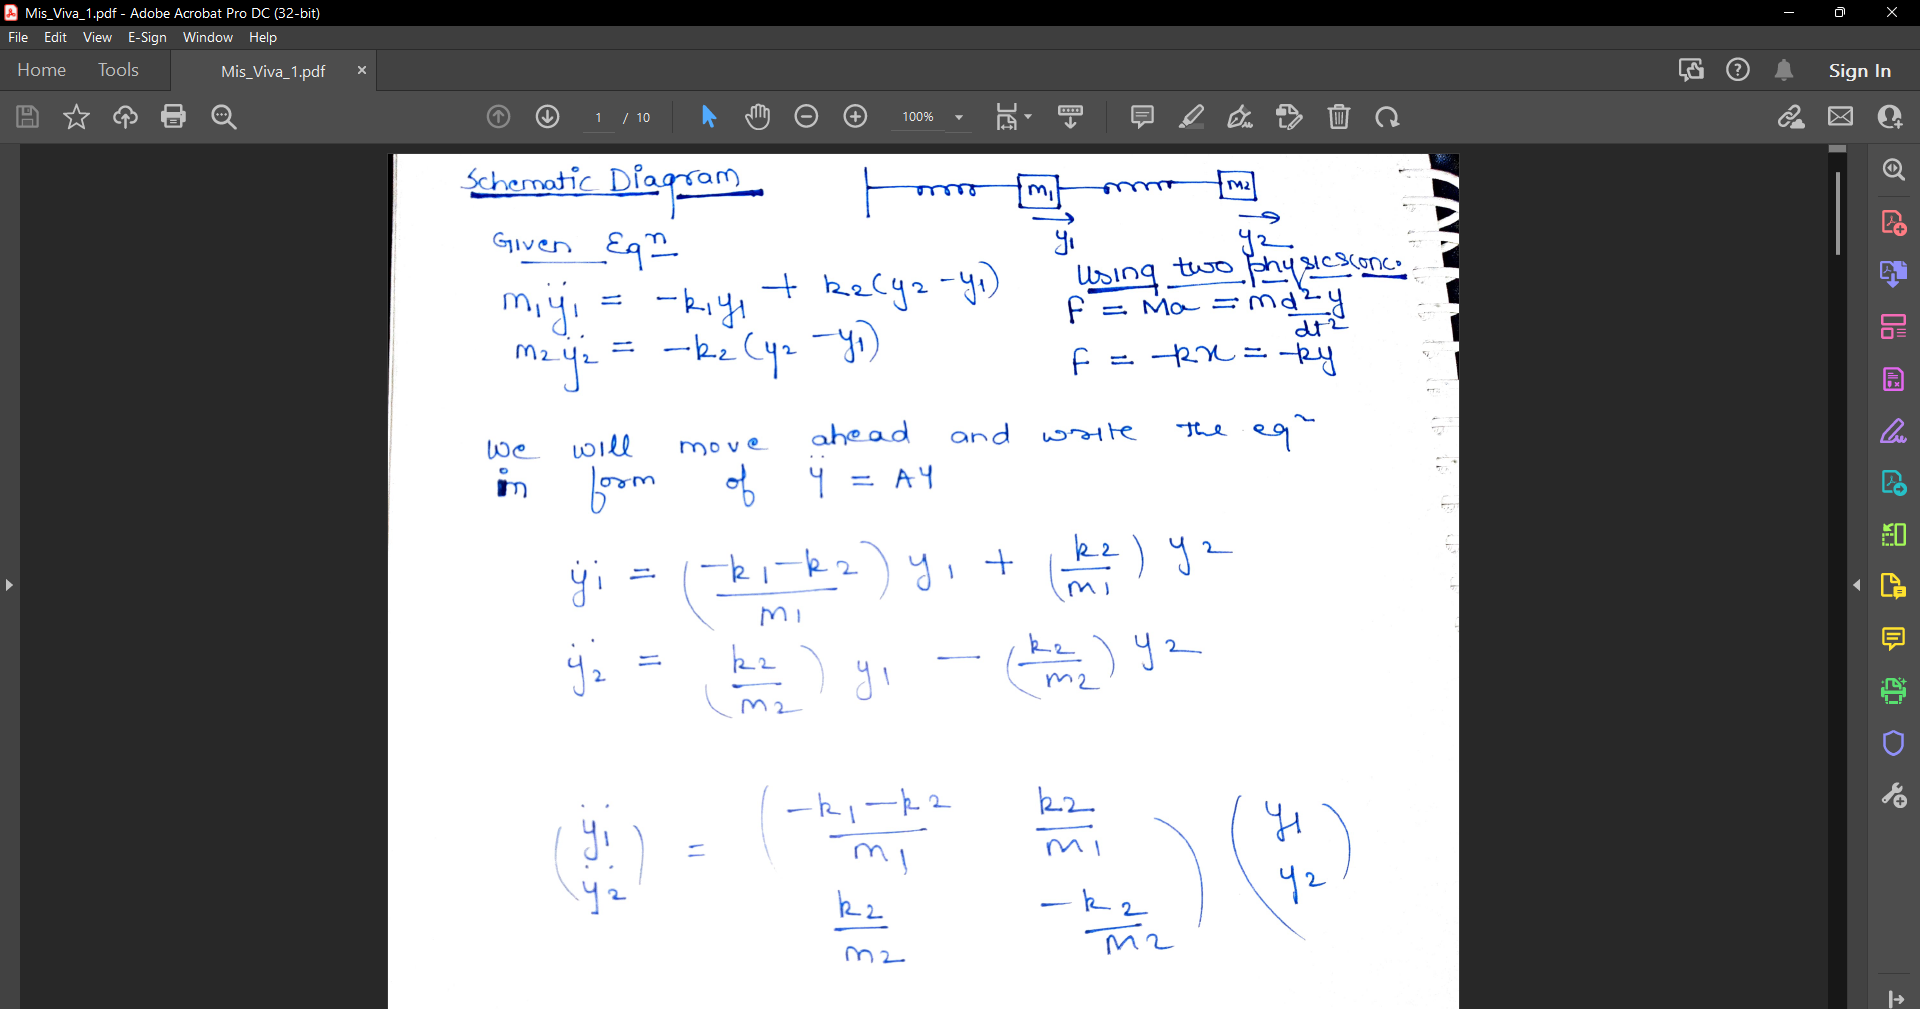 Mis_Viva_1.pdf - Adobe Acrobat Pro DC (32-bit)
File Edit View E-Sign Window Help
Home Tools Mis_Viva_1.pdf × Sign In
1 / 10 100%
Schematic Diagram
m1 m2
y1 y2
Given Eqn
Using two physics conc.
m1ÿ1 = -k1y1 + k2(y2-y1)
F = Ma = m d²y/dt²
m2ÿ2 = -k2(y2-y1)
F = -kx = -ky
We will move ahead and write the eqn
in form of Ÿ = AY
ÿ1 = (-k1-k2/m1) y1 + (k2/m1) y2
ÿ2 = (k2/m2) y1 - (k2/m2) y2
(ÿ1 ÿ2) = (-k1-k2/m1 k2/m1 k2/m2 -k2/m2) (y1 y2)